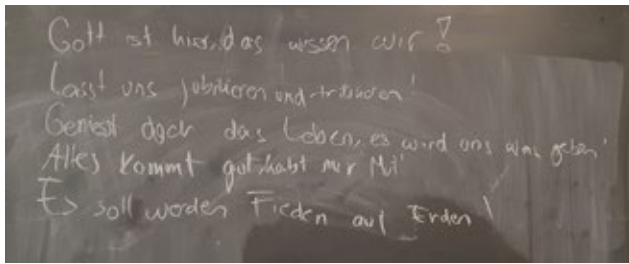 Gott ist hier, das wissen wir!
Lasst uns jubilieren und tribilieren!
Geniest doch das Leben, es wird uns was geben!
Alles kommt gut, habt nur Mut!
Es soll werden Fieden auf Erden!